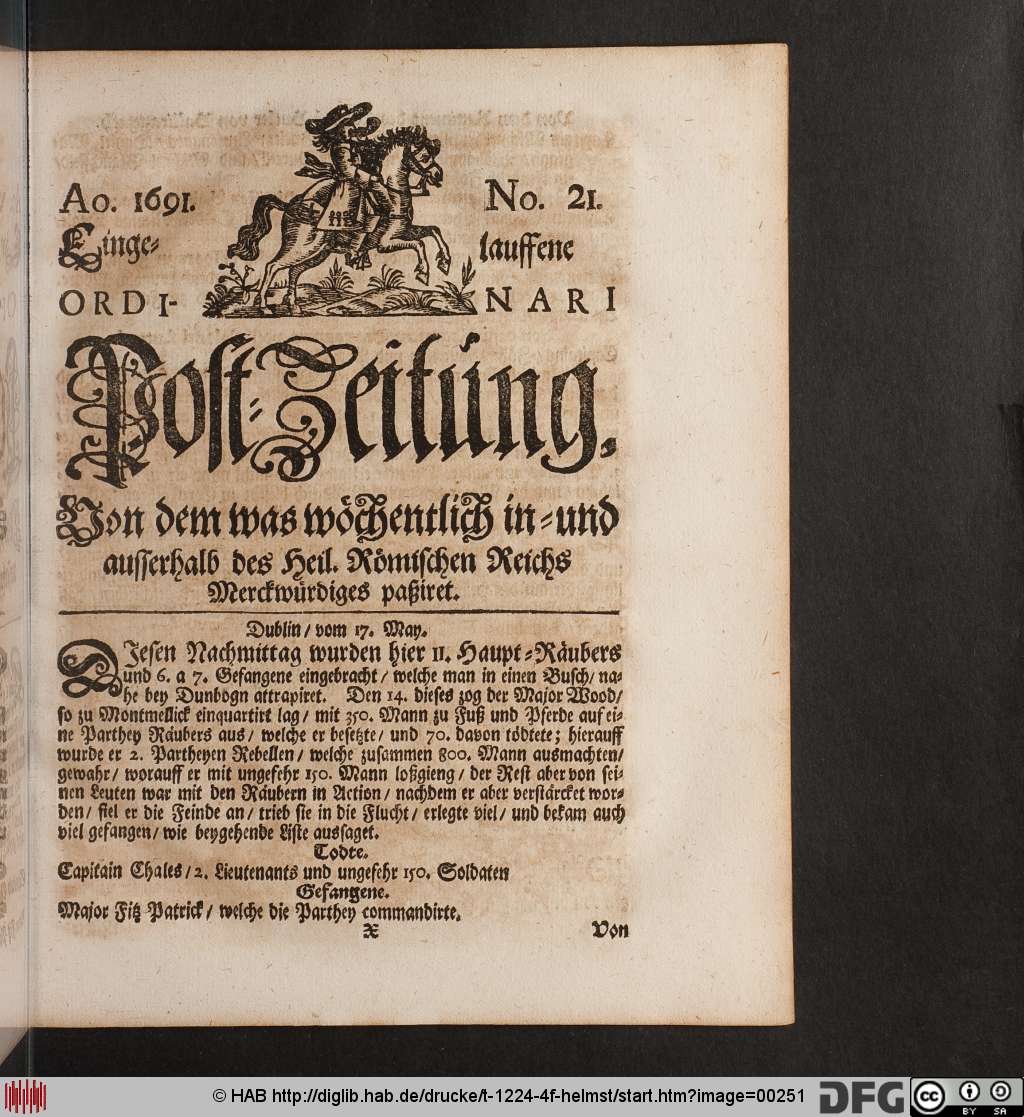 Ao. 1691. No. 21.
Einge- lauffene
ORDI- NARI
Post-Zeitung.
Von dem was wöchentlich in- und
ausserhalb des Heil. Römischen Reichs
Merckwürdiges paßiret.
Dublin / vom 17. May.
DIesen Nachmittag wurden hier 11. Haupt-Räubers
und 6. a 7. Gefangene eingebracht / welche man in einen Busch / na-
he bey Dunbogn attrapiret. Den 14. dieses zog der Major Wood /
so zu Montmellick einquartirt lag / mit 350. Mann zu Fuß und Pferde auf ei-
ne Parthey Räubers aus / welche er besetzte / und 70. davon tödtete; hierauff
wurde er 2. Partheyen Rebellen / welche zusammen 800. Mann ausmachten /
gewahr / worauff er mit ungefehr 150. Mann loßgieng / der Rest aber von sei-
nen Leuten war mit den Räubern in Action / nachdem er aber verstärcket wor-
den / fiel er die Feinde an / trieb sie in die Flucht / erlegte viel / und bekam auch
viel gefangen / wie beygehende Liste aussaget.
Todte.
Capitain Chales / 2. Lieutenants und ungefehr 150. Soldaten
Gefangene.
Major Fitz Patrick / welche die Parthey commandirte.
X Von
© HAB http://diglib.hab.de/drucke/t-1224-4f-helmst/start.htm?image=00251
DFG
cc BY SA